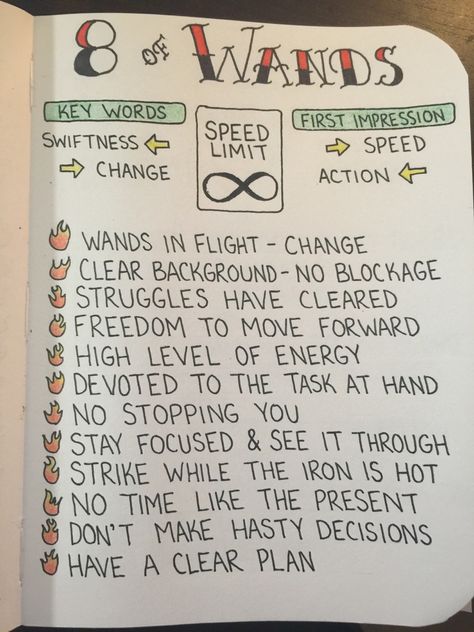 8 OF WANDS
KEY WORDS
SWIFTNESS
CHANGE
SPEED
LIMIT
FIRST IMPRESSION
SPEED
ACTION
WANDS IN FLIGHT - CHANGE
CLEAR BACKGROUND - NO BLOCKAGE
STRUGGLES HAVE CLEARED
FREEDOM TO MOVE FORWARD
HIGH LEVEL OF ENERGY
DEVOTED TO THE TASK AT HAND
NO STOPPING YOU
STAY FOCUSED & SEE IT THROUGH
STRIKE WHILE THE IRON IS HOT
NO TIME LIKE THE PRESENT
DON'T MAKE HASTY DECISIONS
HAVE A CLEAR PLAN